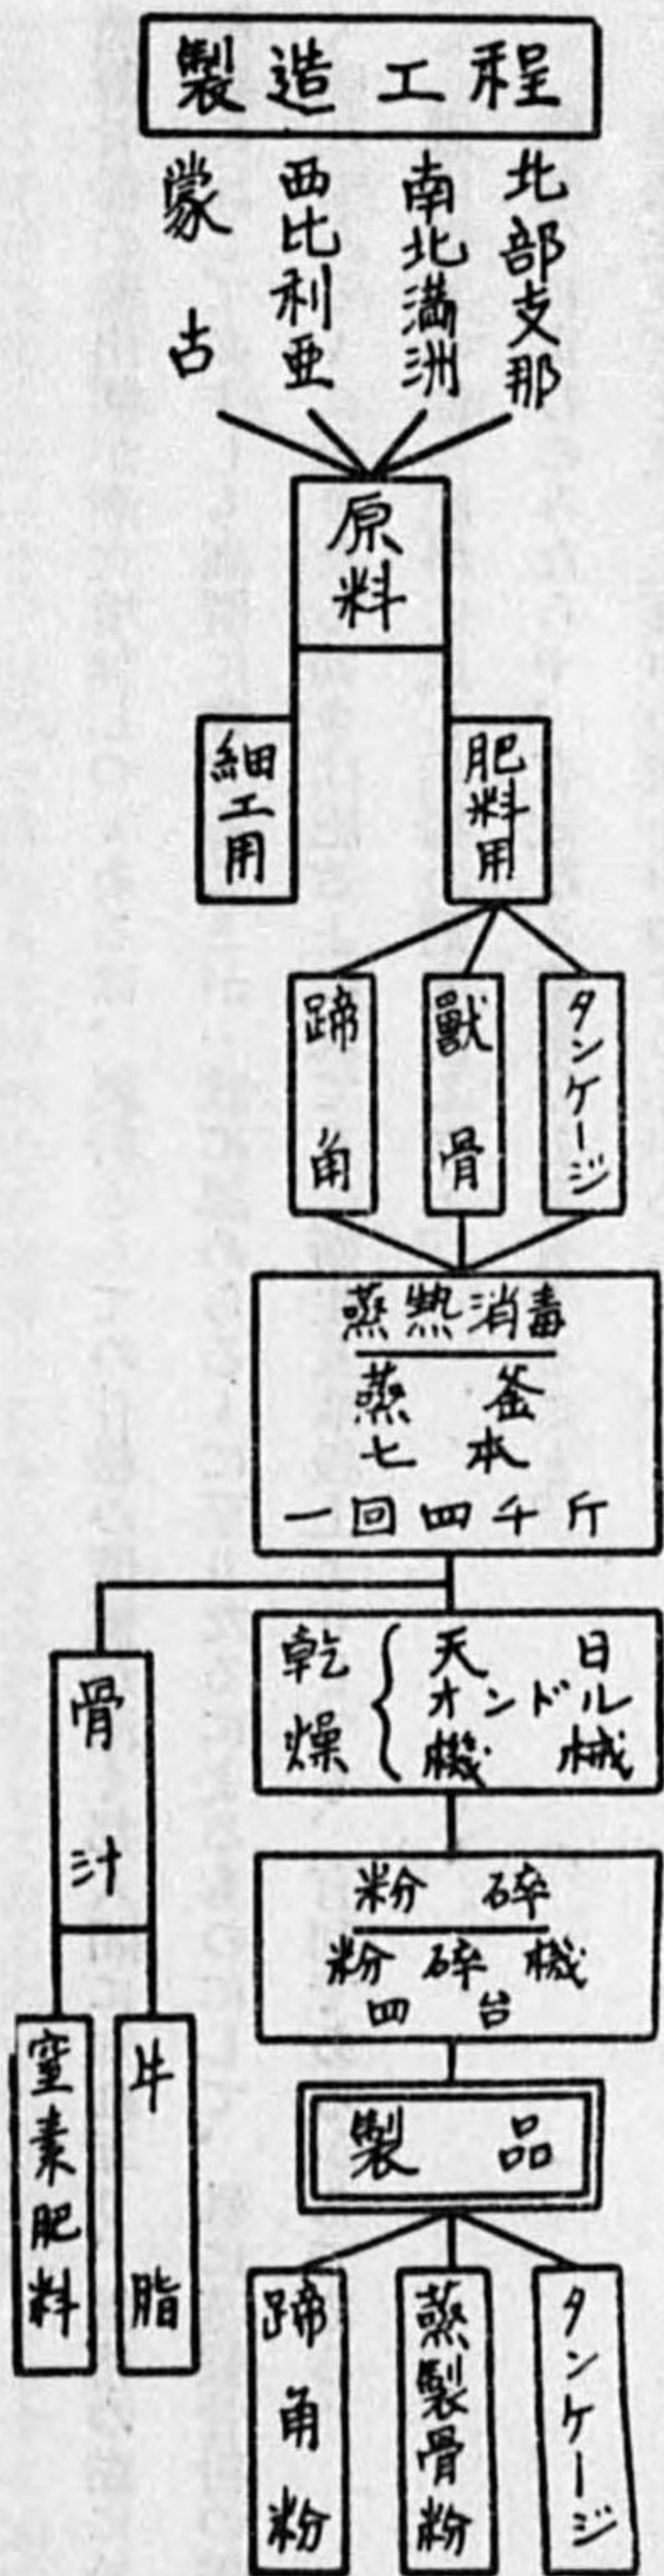 製造工程
北部支那
南北満洲
西比利亜
蒙古
原料
肥料用
細工用
タンケージ
獸骨
蹄角
蒸熱消毒
蒸釜
七本
一回四千斤
乾燥
天日
オンドル
機械
骨汁
粉碎
粉碎機
四台
牛脂
窒素肥料
製品
タンケージ
蒸製骨粉
蹄角粉